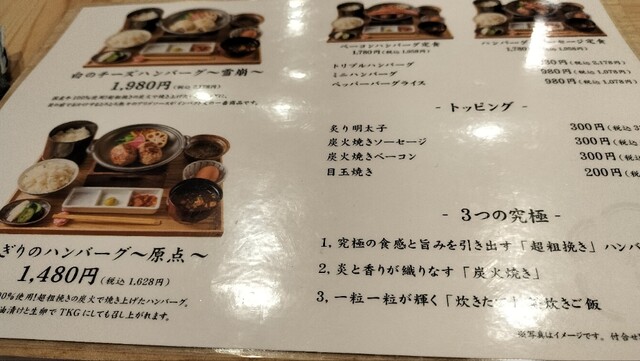 白のチーズハンバーグ～雪崩～
1,980円(税込 2,178円)
ぎりのハンバーグ～原点～
1,480円(税込 1,628円)
00%使用!超粗挽きの炭火で焼き上げたハンバーグ。
油漬けと生卵で TKG にしても召し上がれます。
ベーコンハンバーグ定食
1,780円
トリプルハンバーグ
ミニハンバーグ 980円(税込 1,078円)
ペッパーバーグライス 980円(税込 1,078円)
- トッピング -
炙り明太子 300円(税込
炭火焼きソーセージ 300円(税込
炭火焼きベーコン 300円(税込
目玉焼き 200円(税込
- 3つの究極 -
1. 究極の食感と旨みを引き出す「超粗挽き」ハンバ
2. 炎と香りが織りなす「炭火焼き」
3. 一粒一粒が輝く「炊きた 炊きご飯
※写真はイメージです。付合せ